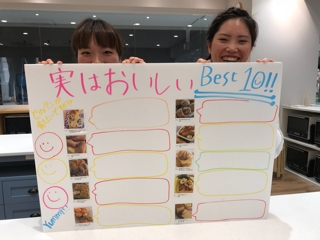 実はおいしい Best 10!!
Yummy!!